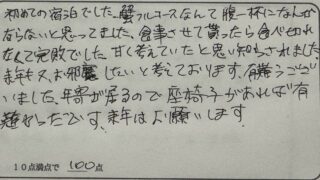 初めての宿泊でした。蟹フルコースなんて腹一杯になんか
ならないと思ってました。食事させて貰ったら食べきれ
なくて完敗でした。甘く考えていたと思い知らされました
来年も又お邪魔したいと考えております。有難うござ
いました。年寄が居るので座椅子があれば有
難かったです。来年はお願いします。
10点満点で 100点